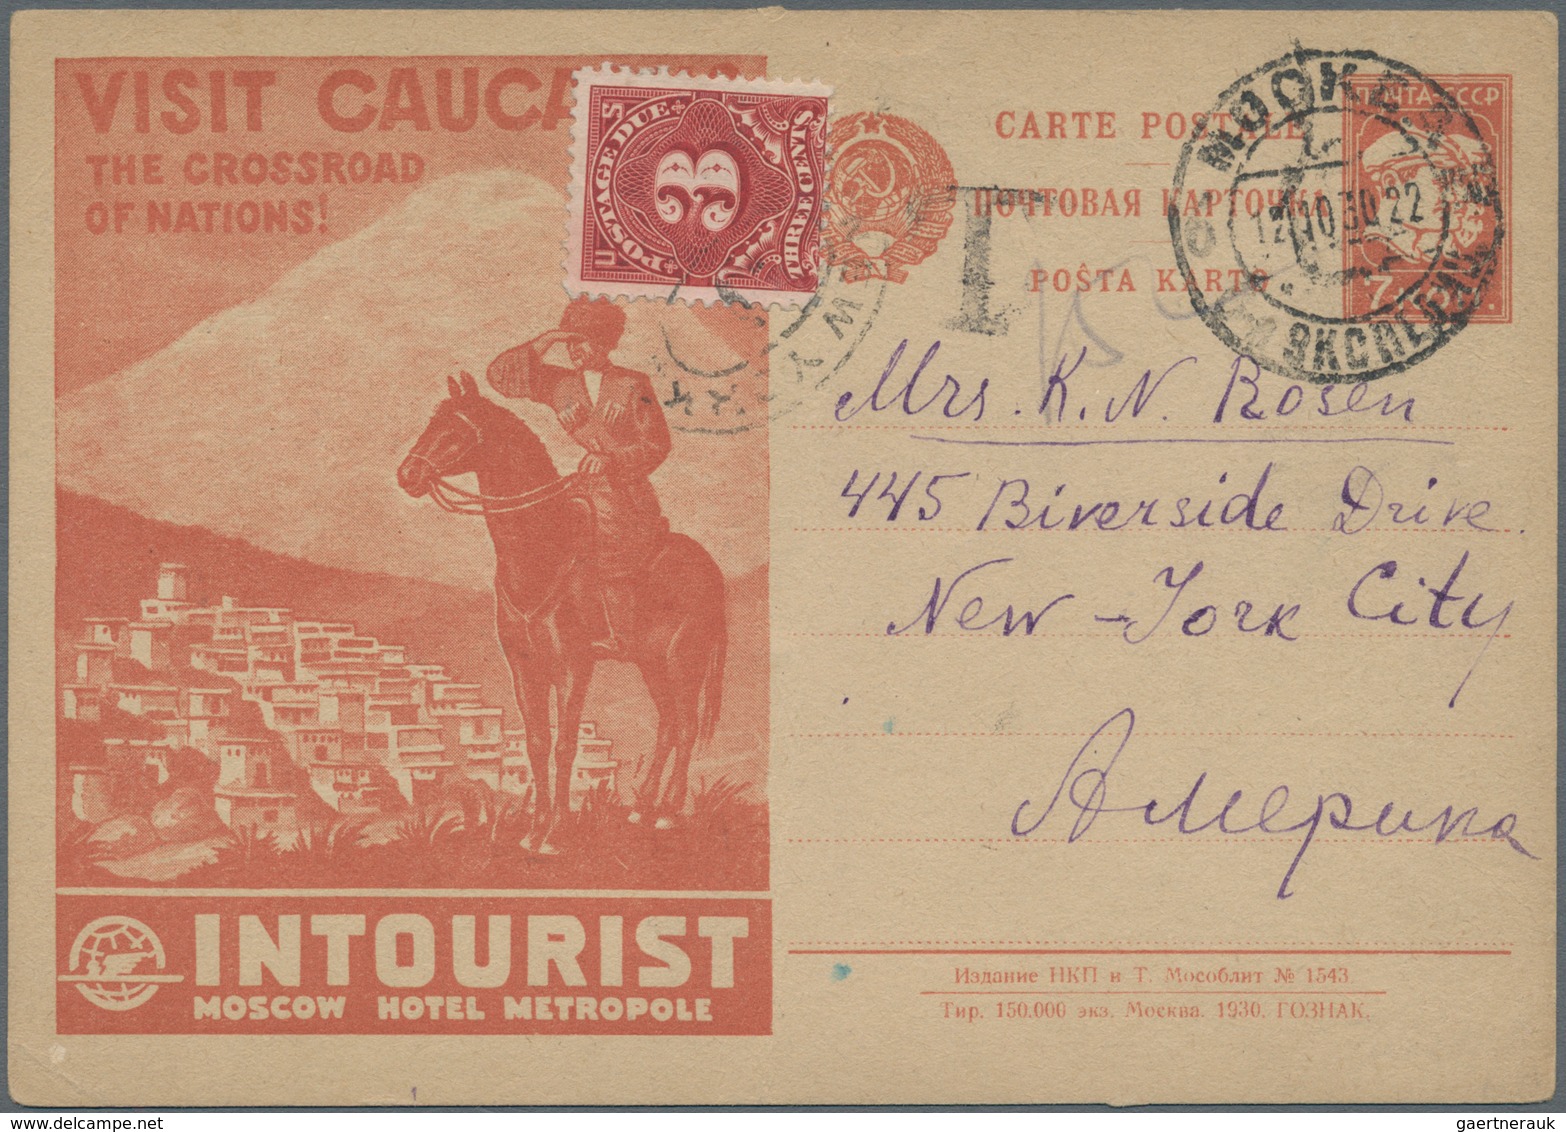 VISIT CAUCA
THE CROSSROAD
OF NATIONS!
POSTAGE DUE
U S
3
THREE CENTS
T
CARTE POSTALE
ПОЧТОВАЯ КАРТОЧКА
POŜTA KARTO
ПОЧТА СССР
7
МОСКВА
12.10.30.22
ЭКСПЕД
N.Y.
Mrs. K. N. Rosen
445 Riverside Drive.
New-York City
Америка
INTOURIST
MOSCOW HOTEL METROPOLE
Издание НКП и Т. Мособлит № 1543.
Тир. 150.000 экз. Москва. 1930. ГОЗНАК.
1
gaertnerauk